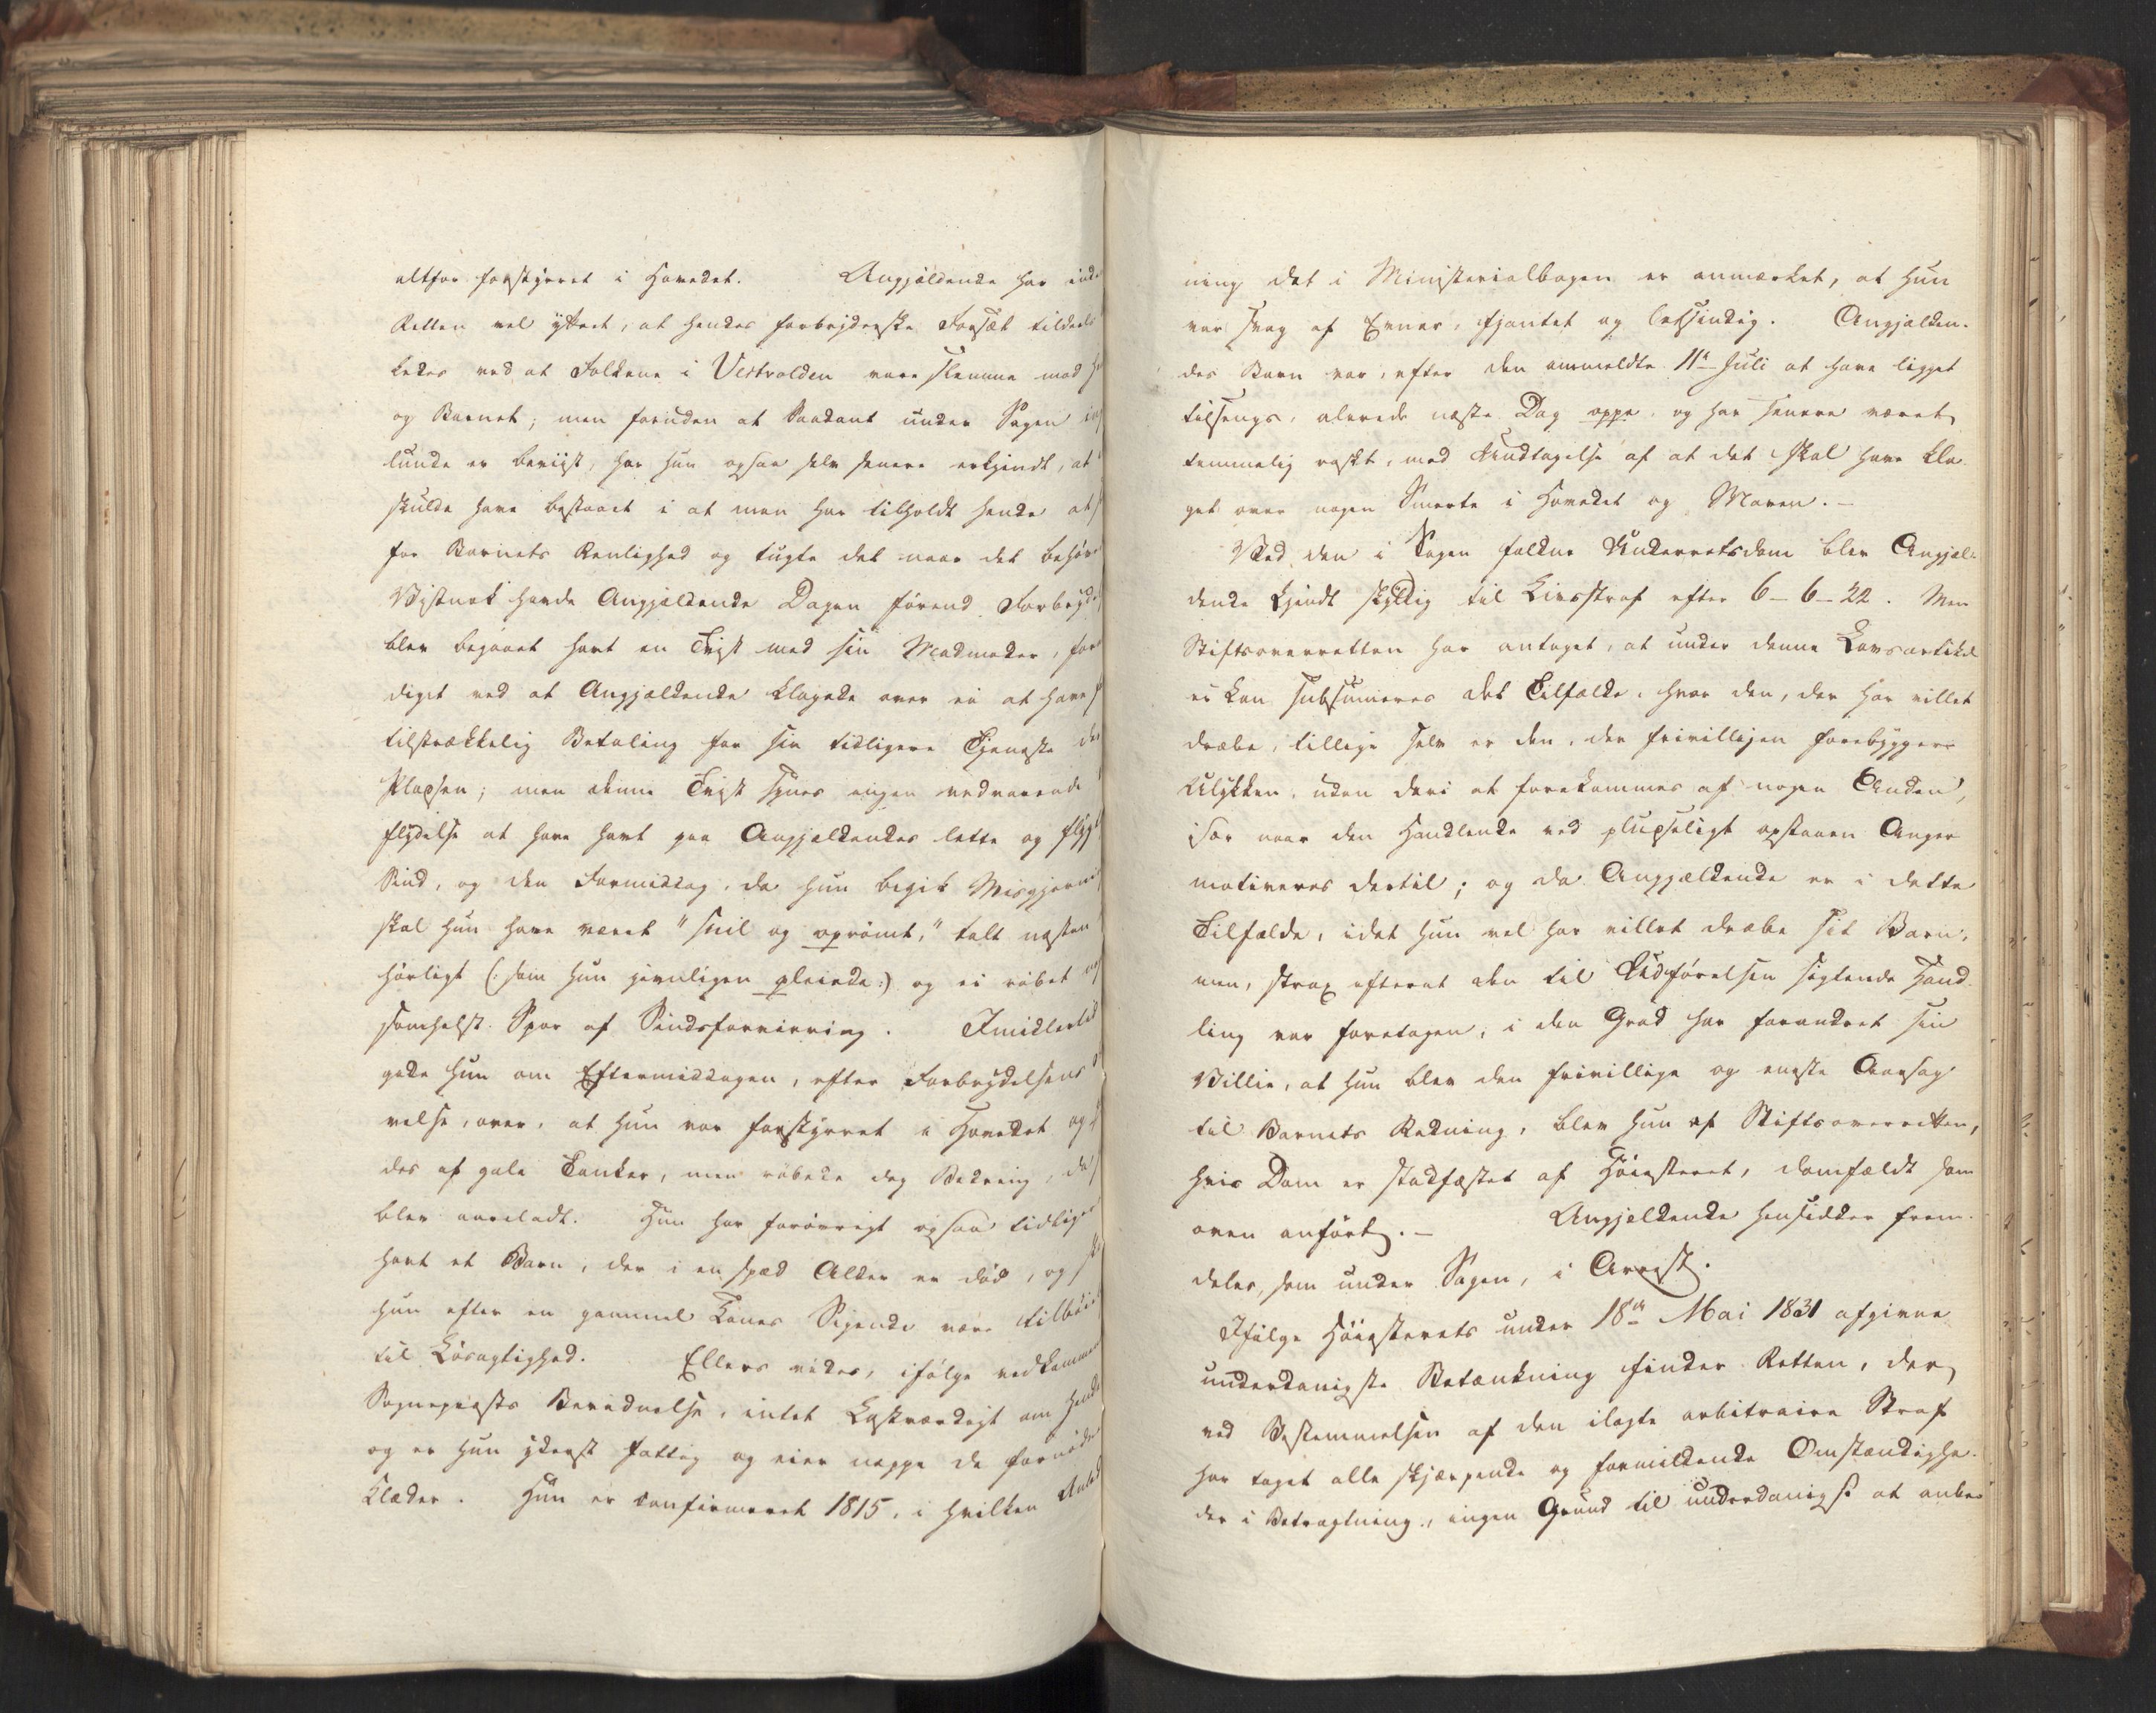 altfor forstyrret i Hovedet. Angjældende har inde
Retten vel yttret, at hendes forbryderske Forsæt tildeels
lededes ved at Folkene i Vestvolden vare slemme mod he
og Barnet; men foruden at Saadant under Sagen in
lunde er beviist, har hun ogsaa selv senere erkjendt, at
skulde have bestaaet i at man har tilholdt hende at s
for Barnets Renlighed og tugte det naar det behøve
Vistnok havde Angjældende Dagen førend Forbryde
blev begaaet havt en Tvist med sin Madmoder, for
diget ved at Angjældende klagede over ei at have f
tilstrækkelig Betaling for sin tidligere Tjeneste der
Pladsen; men denne Tvist synes ingen vedvarende
flydelse at have havt paa Angjældendes lette og flygt
Sind, og den Formiddag, da hun begik Misgjerni
skal hun have været "snil og oprömt," talt næsten
hörligt (: som hun jevnligen pleiede :) og ei röbet no
somhelst Spor af Sindsforvirring. Imidlertid
gede hun om Eftermiddagen, efter Forbrydelsens
velse, over, at hun var forstyrret i Hovedet og
des af gale Tanker, men röbede dog Bedring, da
blev aareladt. Hun har forövrigt ogsaa tidlige
havt et Barn, der i en spæd Alder er död, og s
hun efter en gammel Kones Sigende være tilböie
til Lösagtighed. Ellers vides, ifölge vedkomme
Sognepræsts Berednelse, intet Lastværdigt om hende
og er hun yderst fattig og eier neppe de fornödn
Klæder. Hun er confirmeret 1815, i hvilken Anled
ning det i Ministerialbogen er anmærket, at hun
var svag af Evner, fjantet og letsindig. Angjælden-
des Barn var, efter den ommeldte 11te Juli at have ligget
tilsengs, allerede næste Dag oppe, og har senere været
temmelig raskt, med Undtagelse af at det skal have kla-
get over nogen Smerte i Hovedet og Maven. -
Ved den i Sagen faldne Underretsdom blev Angjæl-
dende kjendt skyldig til Livsstraf efter 6-6-22. Men
Stiftsoverretten har antaget, at under denne Lovsartikel
ei kan subsumeres det Tilfælde, hvor den, der har villet
dræbe, tillige selv er den, der frivilligen forebygger
Ulykken, uden deri at forekommes af nogen Anden,
især naar den Handlende ved pludseligt opstaaen Anger
motiveres dertil; og da Angjældende er i dette
Tilfælde, idet hun vel har villet dræbe sit Barn,
men, strax efterat den til Udförelsen sigtende Hand
ling var foretagen, i den Grad har forandret sin
Villie, at hun blev den frivillige og eneste Aarsag
til Barnets Redning, blev hun af Stiftsoverretten,
hvis Dom er stadfæstet af Höiesteret, domfældt som
oven anfört. - Angjældende hensidder frem-
deles, som under Sagen, i Arrest.
Ifölge Höiesterets under 18de Mai 1831 afgivne
underdanigste Betænkning finder Retten, der,
ved Bestemmelsen af den ilagte arbitraire Straf
har taget alle skjærpende og formildende Omstændighe-
der i Betragtning, ingen Grund til underdanigst at anbe